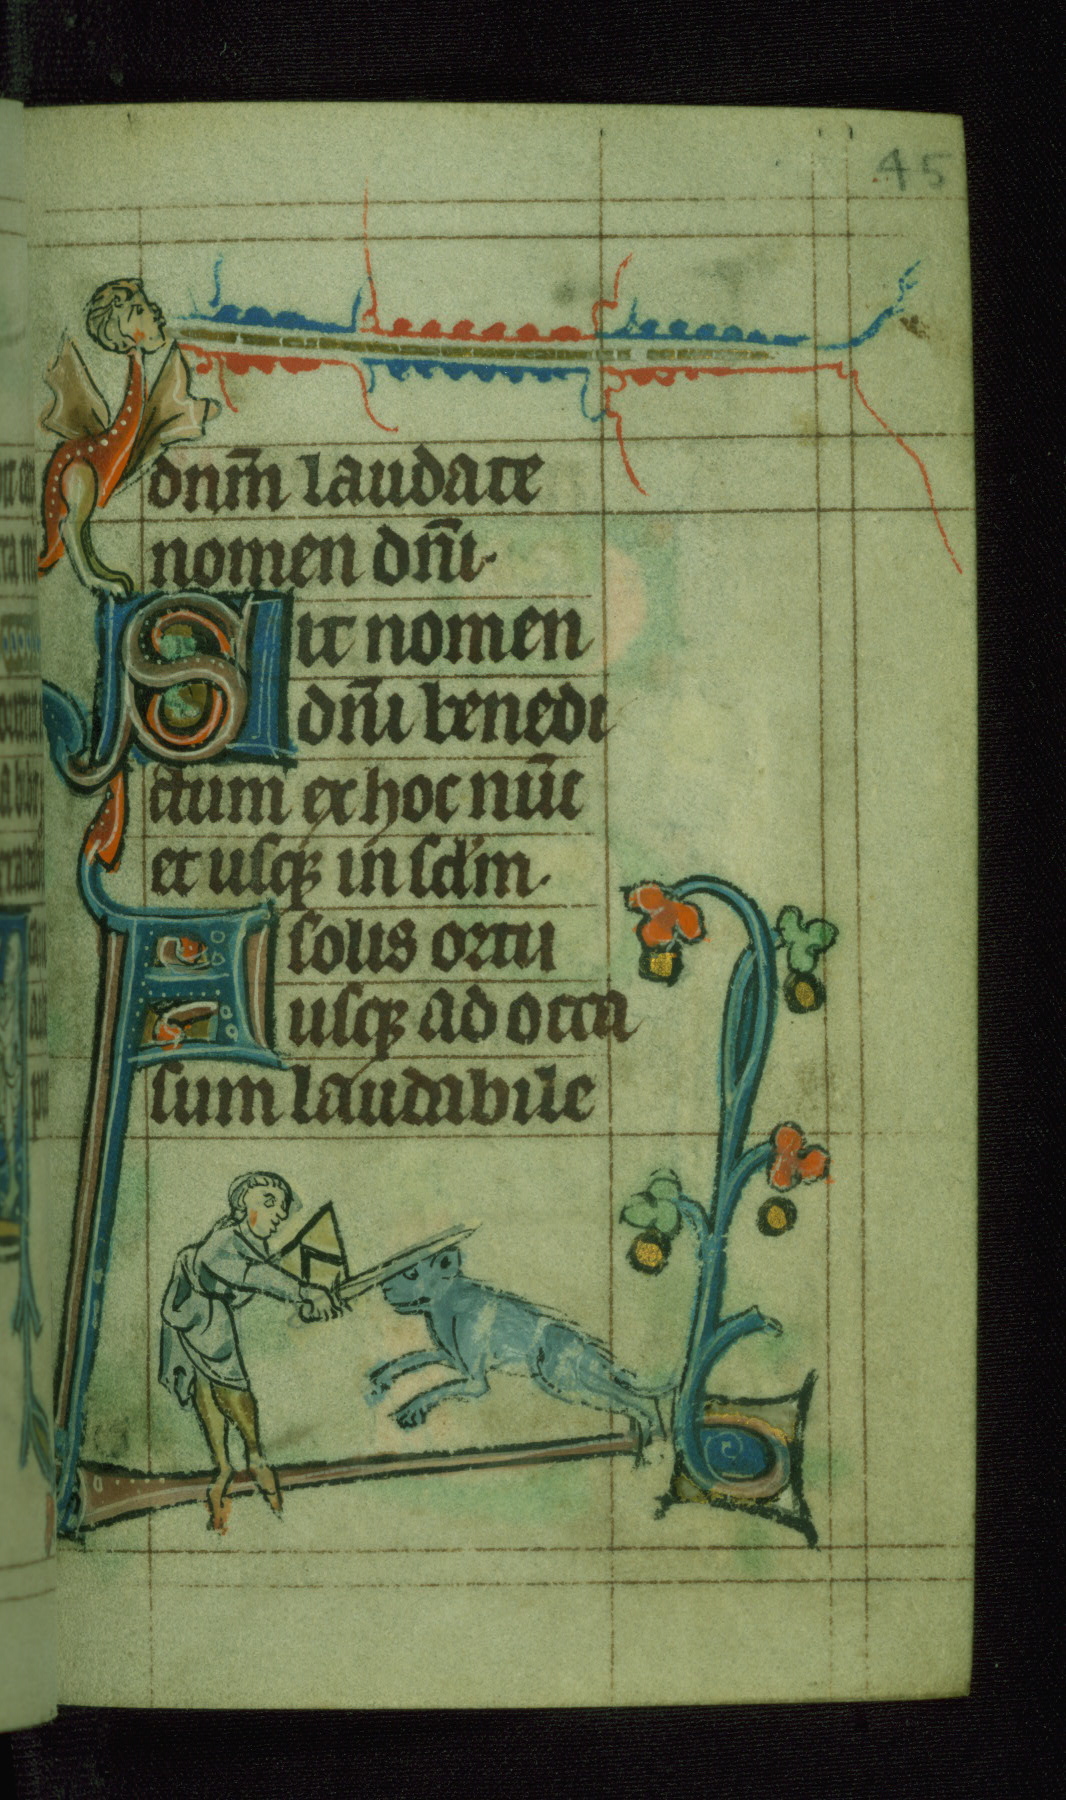 45
dnm̄ laudate
nomen dn̄i·
Sit nomen
dn̄i benedi
ctum ex hoc nūc
et usq; in sclm̄·
A solis ortu
usq; ad occa
sum laudabile